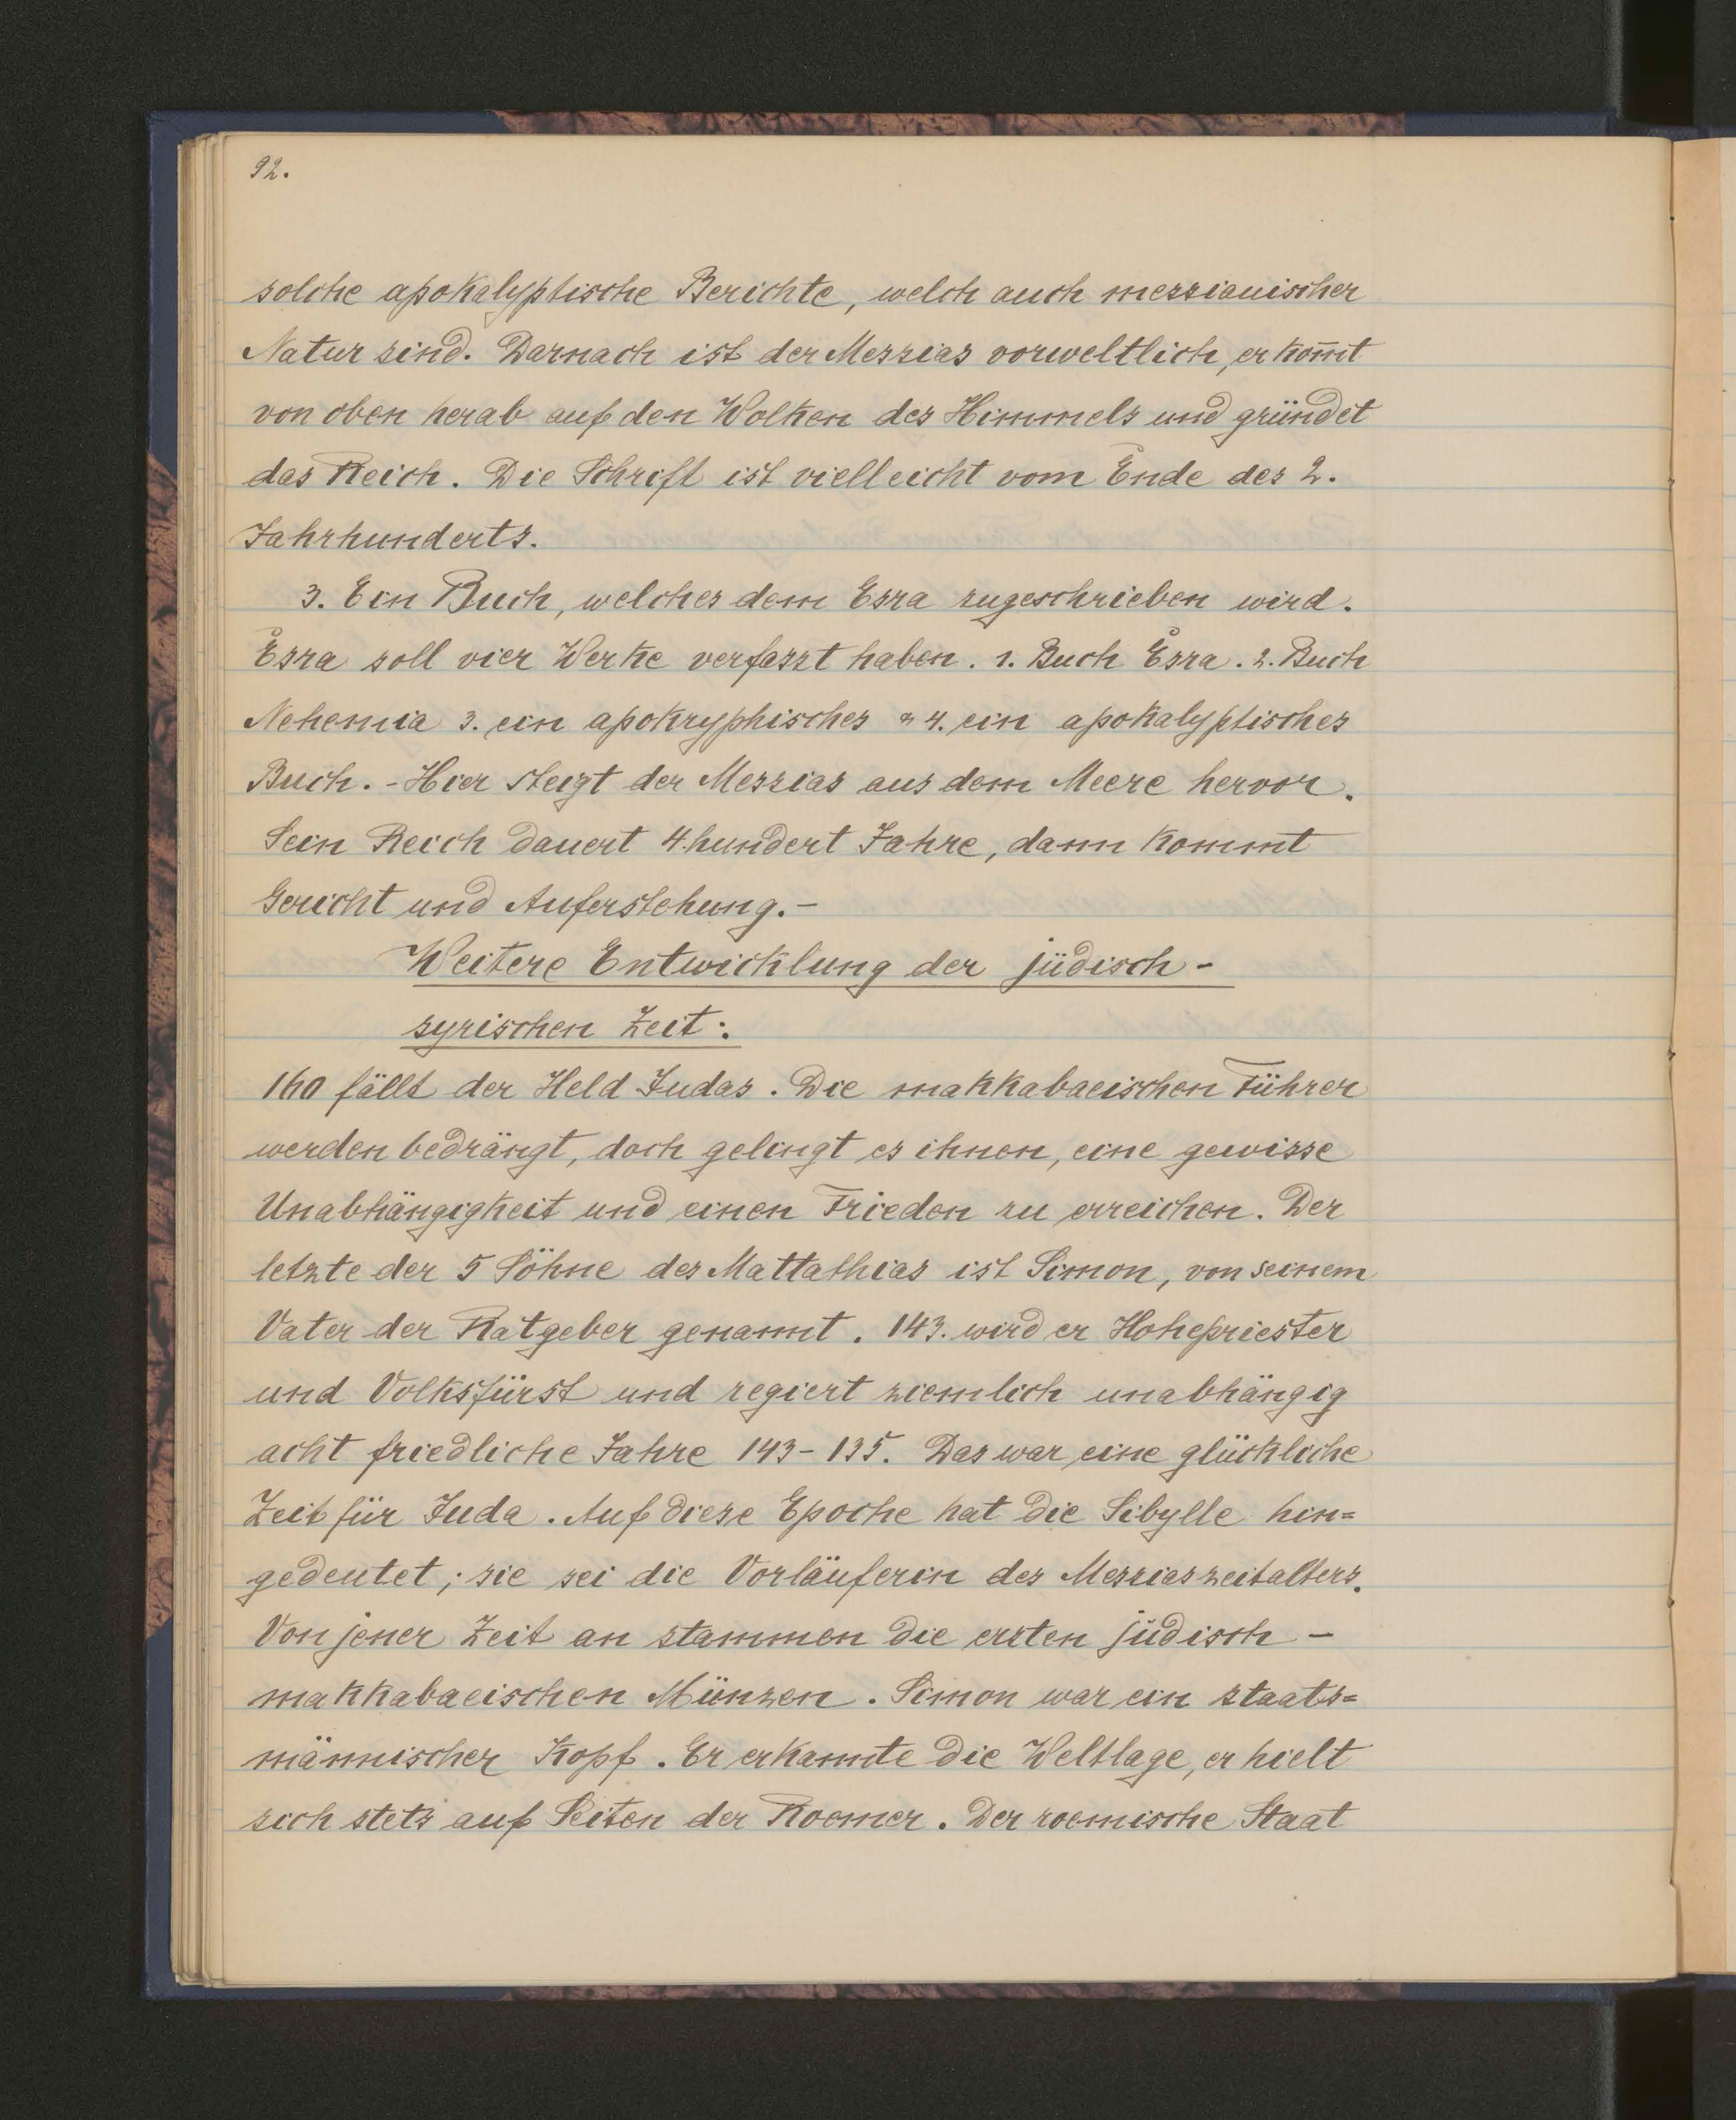 92.
solche apokalyptische Berichte, welch auch messianischer
Natur sind. Darnach ist der Messias vorweltlich, er kom̄t
von oben herab auf den Wolken des Himmels und gründet
das Reich. Die Schrift ist vielleicht vom Ende des 2.
Jahrhunderts.
3. Ein Buch, welches dem Esra zugeschrieben wird.
Esra soll vier Werke verfasst haben. 1. Buch Esra. 2. Buch
Nehemia 3. ein apokryphisches & 4. ein apokalyptisches
Buch. - Hier steigt der Messias aus dem Meere hervor.
Sein Reich dauert 4hundert Jahre, dann kommt
Gericht und Auferstehung. -
Weitere Entwicklung der jüdisch -
syrischen Zeit:
160 fällt der Held Judas. Die makkabaeischen Führer
werden bedrängt, doch gelingt es ihnen, eine gewisse
Unabhängigkeit und einen Frieden zu erreichen. Der
letzte der 5 Söhne des Mattathias ist Simon, von seinem
Vater der Ratgeber genannt. 143. wird er Hohepriester
und Volksfürst und regiert ziemlich unabhängig
acht friedliche Jahre 143 - 135. Das war eine glückliche
Zeit für Juda. Auf diese Epoche hat die Sibylle hin=
gedeutet; sie sei die Vorläuferin des Messiaszeitalters.
Von jener Zeit an stammen die ersten jüdisch -
makkabaeischen Münzen. Simon war ein staats=
männischer Kopf. Er erkannte die Weltlage, er hielt
sich stets auf Seiten der Roemer. Der roemische Staat